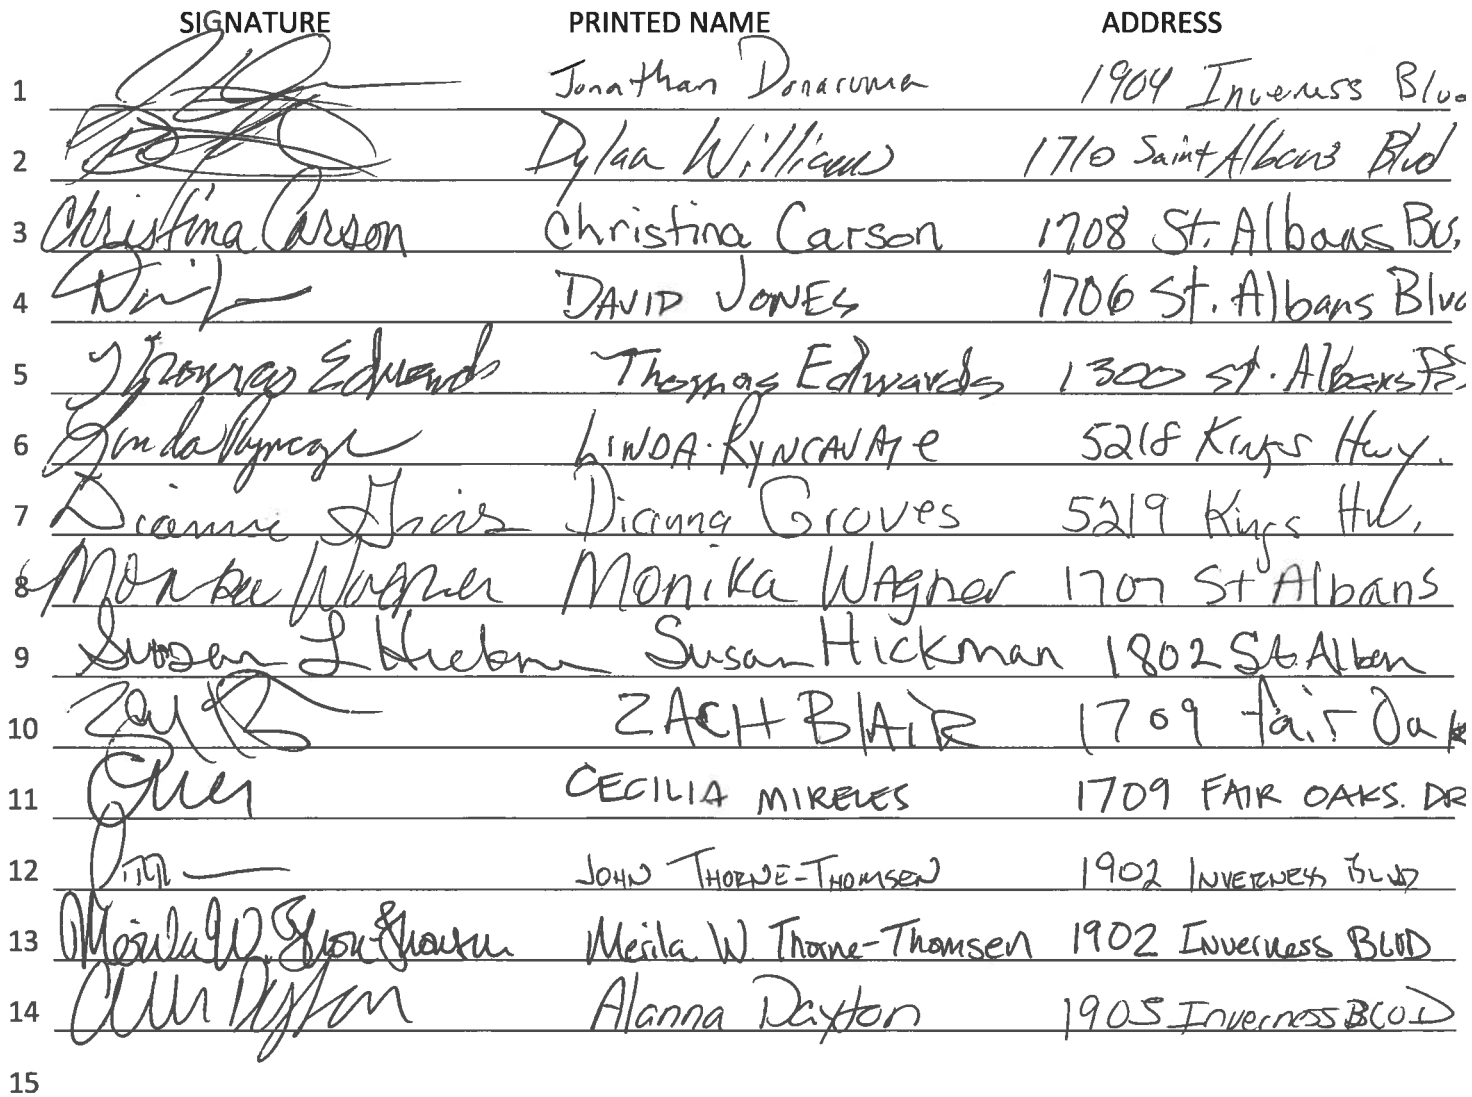 SIGNATURE PRINTED NAME ADDRESS
1 Jonathan Donaruma 1904 Inverness Blvd
2 Dylan Williams 1710 Saint Albans Blvd
3 Christina Carson Christina Carson 1708 St. Albans Bv.
4 DAVID JONES 1706 St. Albans Blvd
5 Thomas Edwards Thomas Edwards 1300 St. Albans
6 Linda LINDA 5218 Kings Hwy.
7 Dianna Groves 5219 Kings Hw.
8 Monika Wagner Monika WAgner 1707 St Albans
9 Susan L Hickman Susan Hickman 1802 St. Alban
10 ZACH BLAIR 1709 Fair Oak
11 CECILIA MIRELES 1709 FAIR OAKS. DR
12 JOHN THORNE-THOMSEN 1902 INVERNESS BLVD
13 Merila W. Thorne-Thomsen Merila W. Thorne-Thomsen 1902 Inverness BLVD
14 Alanna Dayton 1905 Inverness BLVD
15